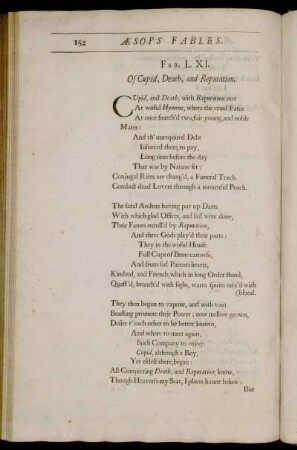 152 ÆSOPS FABLES.
FAB. LXI.
Of Cupid, Death, and Reputation.
CUpid, and Death, with Reputation met
At woful Hymens, where the cruel Fates
At once snatch'd two, fair, young, and noble
Mates:
And th' unrequired Debt
Inforced them to pay,
Long time before the day
That was by Nature set:
Conjugal Rites are chang'd, a Funeral Torch
Conduct dead Lovers through a mournful Porch.
The fatal Archers having put up Darts
With which glad Offices, and sad were done,
Their Fames enroll'd by Reputation,
And three Gods play'd their parts:
They in the woful House
Full Cups of Brine carowse,
And from sad Parents hearts,
Kindred, and Friends, which in long Order stood,
Quaff'd, broach'd with sighs, warm spirits mix'd with
(blood.
They then began to vapour, and with vain
Boasting promote their Power; now mellow grown,
Desire t' each other to be better known,
And where to meet again,
Such Company to enjoy.
Cupid, although a Boy,
Yet eldest there, began:
All Conquering Death, and Reputation, know,
Though Heaven's my Seat, I place haunt below:
But